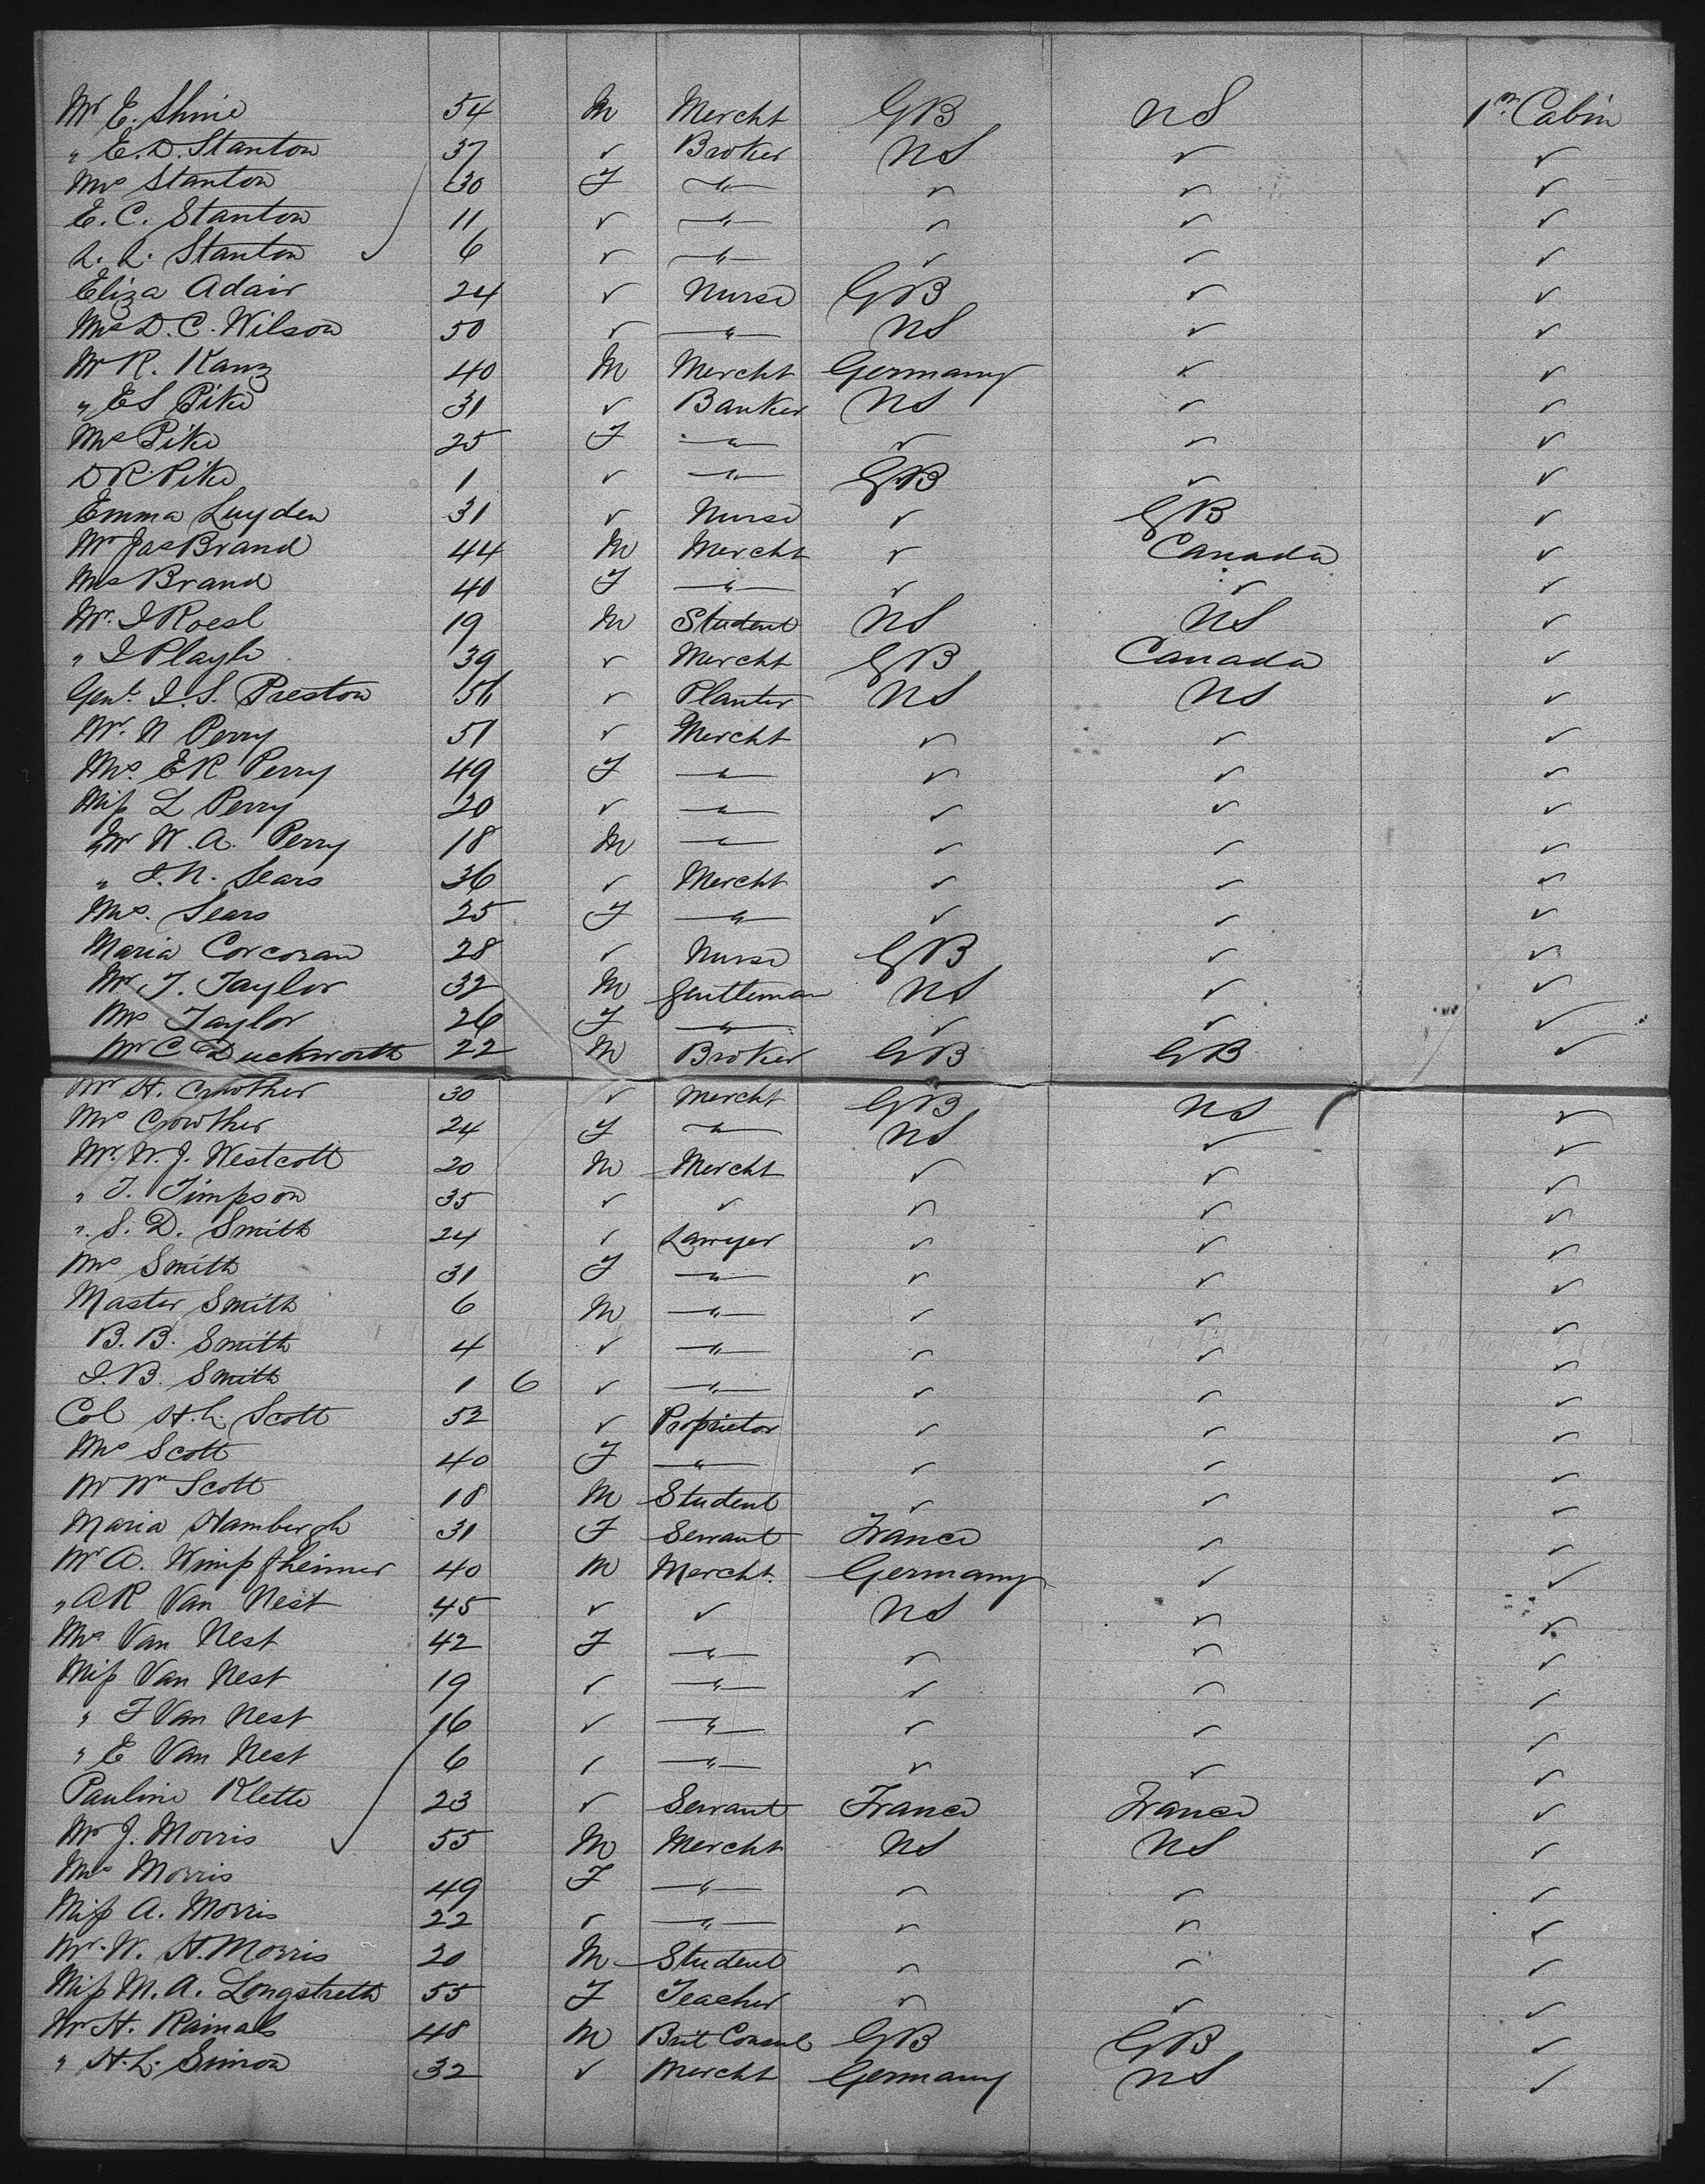 Mr E. Shine 54 M Mercht GB US 1st Cabin
" E. D. Stanton 37 ✓ Broker US ✓ ✓
Mrs Stanton 30 F —"— ✓ ✓ ✓
E. C. Stanton 11 ✓ —"— ✓ ✓ ✓
L. L. Stanton 6 ✓ —"— ✓ ✓ ✓
Eliza Adair 24 ✓ Nurse GB ✓ ✓
Mrs D. C. Wilson 50 ✓ —"— US ✓ ✓
Mr R. Kanz 40 M Mercht Germany ✓ ✓
" E S Pike 31 ✓ Banker US ✓ ✓
Mrs Pike 25 F —"— ✓ ✓ ✓
D R Pike 1 ✓ —"— GB ✓ ✓
Emma Luyden 31 ✓ Nurse ✓ GB ✓
Mr Jas Brand 44 M Mercht ✓ Canada ✓
Mrs Brand 40 F —"— ✓ ✓ ✓
Mr. I Roesl 19 M Student US US ✓
" I Playle 39 ✓ Mercht GB Canada ✓
Genl. I. S. Preston 56 ✓ Planter US US ✓
Mr. N Perry 51 ✓ Mercht ✓ ✓ ✓
Mrs. E R Perry 49 F —"— ✓ ✓ ✓
Miss L Perry 20 ✓ —"— ✓ ✓ ✓
Mr W. A. Perry 18 M —"— ✓ ✓ ✓
" I. N. Sears 36 ✓ Mercht ✓ ✓ ✓
Mrs. Sears 25 F —"— ✓ ✓ ✓
Maria Corcoran 28 ✓ Nurse GB ✓ ✓
Mr T. Taylor 32 M Gentleman US ✓ ✓
Mrs Taylor 26 F —"— ✓ ✓ ✓
Mr C Duckworth 22 M Broker GB GB ✓
Mr H. Crowther 30 ✓ Mercht GB US ✓
Mrs Crowther 24 F —"— US ✓ ✓
Mr. W. J. Westcott 20 M Mercht ✓ ✓ ✓
" T. Timpson 35 ✓ ✓ ✓ ✓ ✓
" S. D. Smith 24 ✓ Lawyer ✓ ✓ ✓
Mrs Smith 31 F —"— ✓ ✓ ✓
Master Smith 6 M —"— ✓ ✓ ✓
B. B. Smith 4 ✓ —"— ✓ ✓ ✓
I. B. Smith 1 6 ✓ —"— ✓ ✓ ✓
Col H. L. Scott 52 ✓ Proprietor ✓ ✓ ✓
Mrs Scott 40 F —"— ✓ ✓ ✓
Mr Wm Scott 18 M Student ✓ ✓ ✓
Maria Hambergh 31 F Servant France ✓ ✓
Mr A. Wimpfheimer 40 M Mercht. Germany ✓ ✓
" A R Van Nest 45 ✓ ✓ US ✓ ✓
Mrs Van Nest 42 F —"— ✓ ✓ ✓
Miss Van Nest 19 ✓ —"— ✓ ✓ ✓
" J Van Nest 16 ✓ —"— ✓ ✓ ✓
" E Van Nest 6 ✓ —"— ✓ ✓ ✓
Pauline Klette 23 ✓ Servant France France ✓
Mr J. Morris 55 M Mercht US US ✓
Mrs Morris 49 F —"— ✓ ✓ ✓
Miss A. Morris 22 ✓ —"— ✓ ✓ ✓
Mr. W. H. Morris 20 M Student ✓ ✓ ✓
Miss M. A. Longstreth 55 F Teacher ✓ ✓ ✓
Mr H. Rainals 48 M Brit Consul GB GB ✓
" H. L. Simon 32 ✓ Mercht Germany US ✓